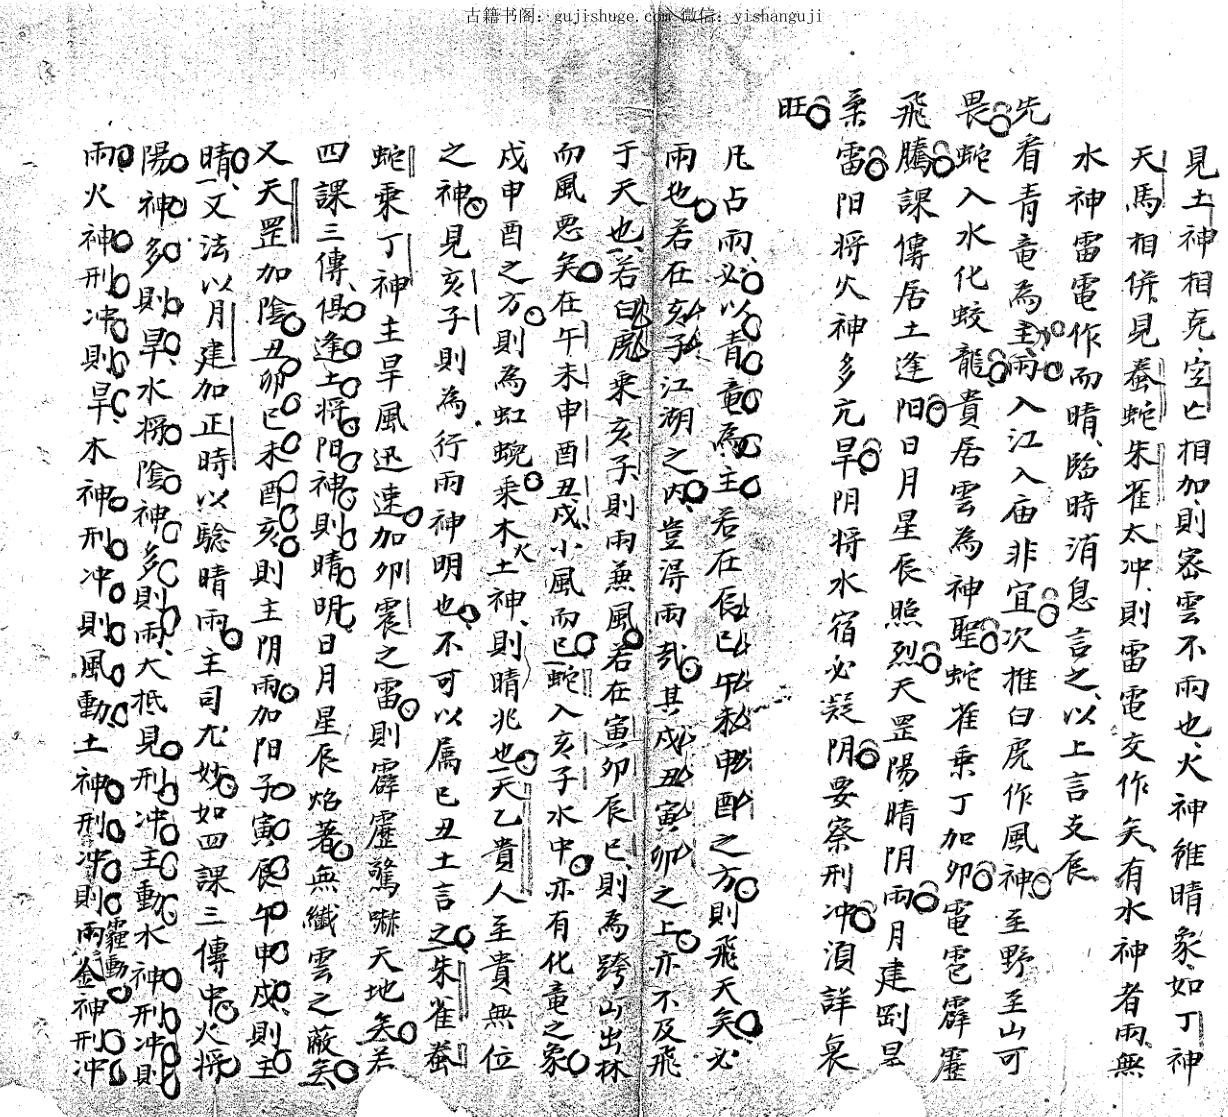 古籍书阁：gujishuge.com 微信：yishanguji
見土神相克空亡相加則密雲不雨也火神維晴象如丁神
天馬相併見螣蛇朱雀太冲則雷電交作矣有水神者雨無
水神雷電作而晴臨時消息言之以上言支辰
先看青竜為主雨入江入庙非宜次推白虎作風神至野至山可
畏蛇入水化蛟龍貴居雲為神聖蛇雀乗丁加卯電雹霹靂
飛騰課傳居土逢阳日月星辰照烈天罡陽晴阴雨月建剛是
柔雷阳将火神多亢旱阴将水宿必疑阴要察刑冲湏詳衰
旺
凡占雨必以青竜為主若在辰巳午未申酉之方則飛天矣必
雨也若在亥子江湖之内豈得雨哉其戍丑寅卯之上亦不及飛
于天也若白虎乗亥子則雨兼風若在寅卯辰巳則為跨山出林
而風恶矣在午未申酉丑戍小風而已蛇入亥子水中亦有化竜之象
戍申酉之方則為虹蜺乗木火土神則晴兆也天乙貴人至貴無位
之神見亥子則為行雨神明也不可以属已丑土言之朱雀螣
蛇乗丁神主旱風迅速加卯震之雷則霹靂驚嚇天地矣若
四課三傳俱逢土将阳神則晴明日月星辰焰著無纖雲之蔽矣
又天罡加陰丑卯巳未酉亥則主阴雨加阳子寅辰午申戍則主
晴文法以月建加正時以驗晴雨主司尤妙如四課三傳中火将
陽神多則旱水将陰神多則雨大抵見刑冲主動水神刑冲則
雨火神刑冲則旱木神刑冲則風動土神刑冲則雨霾動金神刑冲